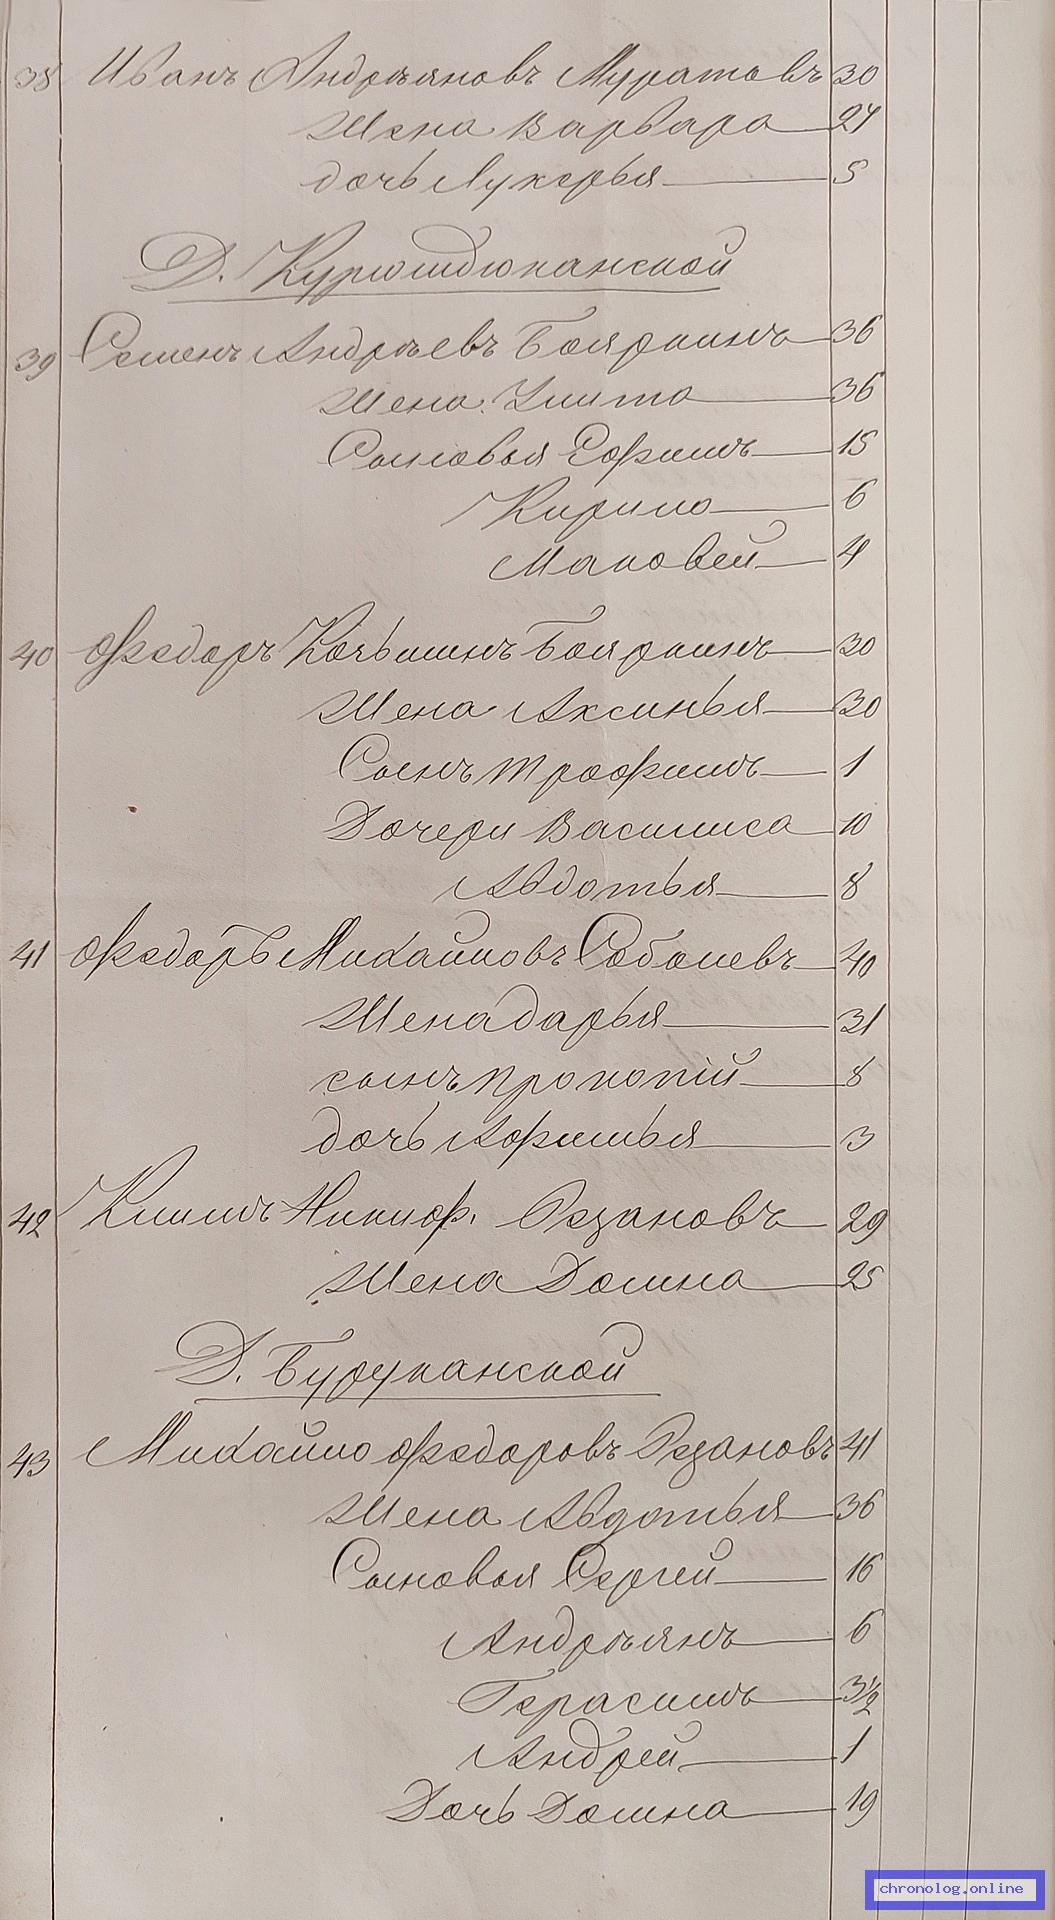 38 Иванъ Андреяновъ Муратовъ 30
Жена Варвара 27
дочь Лукерья 5
Д. Курюмдюканской
39 Семенъ Андреевъ Бояркинъ 36
Жена Улита 36
Сыновья Ефимъ 15
Кирило 6
Маковей 4
40 Федоръ Бояркинъ 30
Жена Аксинья 30
Сынъ Трофимъ 1
Дочери Василиса 10
Авдотья 8
41 Федоръ Михайловъ Соболевъ 40
Жена дарья 31
сынъ прокопій 8
дочь Афимья 3
42 Климъ Никиф. Резановъ 29
Жена Домна 25
Д. Буруканской
43 Михайло Федоровъ Резановъ 41
Жена Авдотья 36
Сыновья Сергей 16
Андреянъ 6
Герасимъ 3½
Андрей 1
Дочь Домна 19
chronolog.online